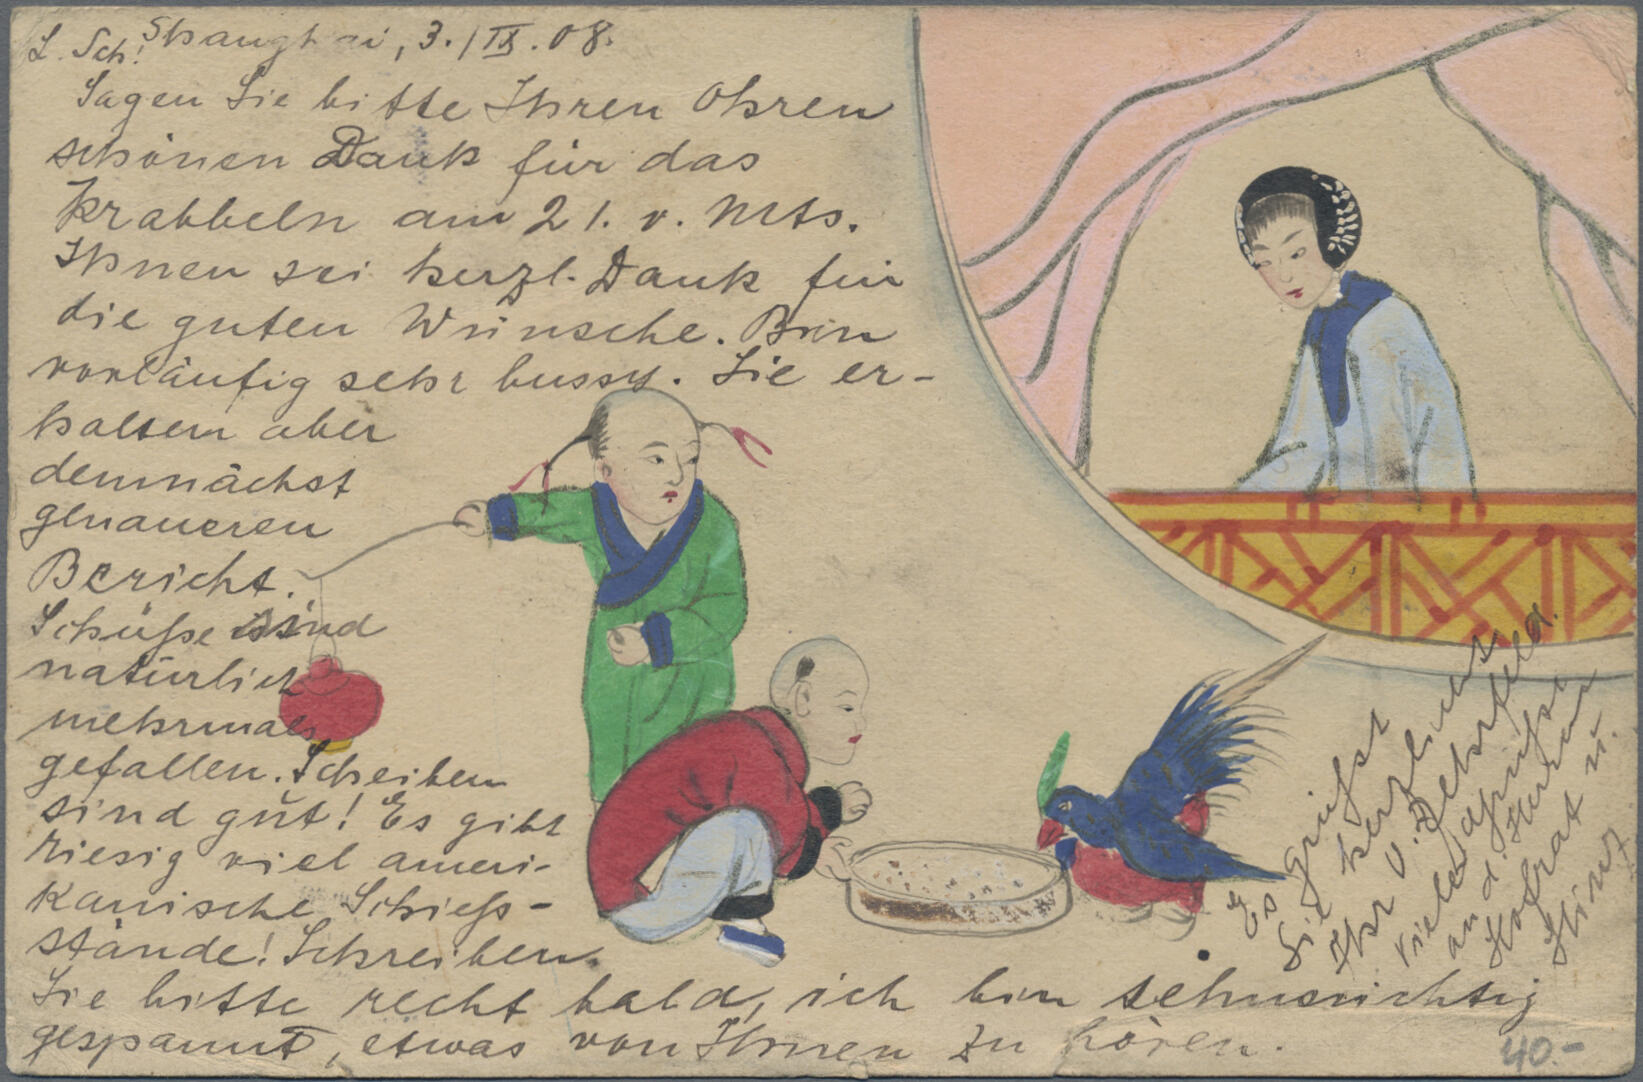 L. Sch! Shanghai, 3./IX.08.
Sagen Sie bitte Ihren Ohren
schönen Dank für das
Krabbeln am 21. v. Mts.
Ihnen sei herzl. Dank für
die guten Wünsche. Bin
vorläufig sehr bussy. Sie er-
halten aber
demnächst
genaueren
Bericht.
Schüße sind
natürlich
mehrmals
gefallen. Scheiben
sind gut! Es gibt
riesig viel ameri-
kanische Schieß-
stände! Schreiben
Sie bitte recht bald, ich bin sehnsüchtig
gespannt, etwas von Ihnen zu hören.
Es grüßt
Sie herzlichst
Ihr
Viele Grüße
an d. Herrn
Hofrat u.
Hinz
40.-